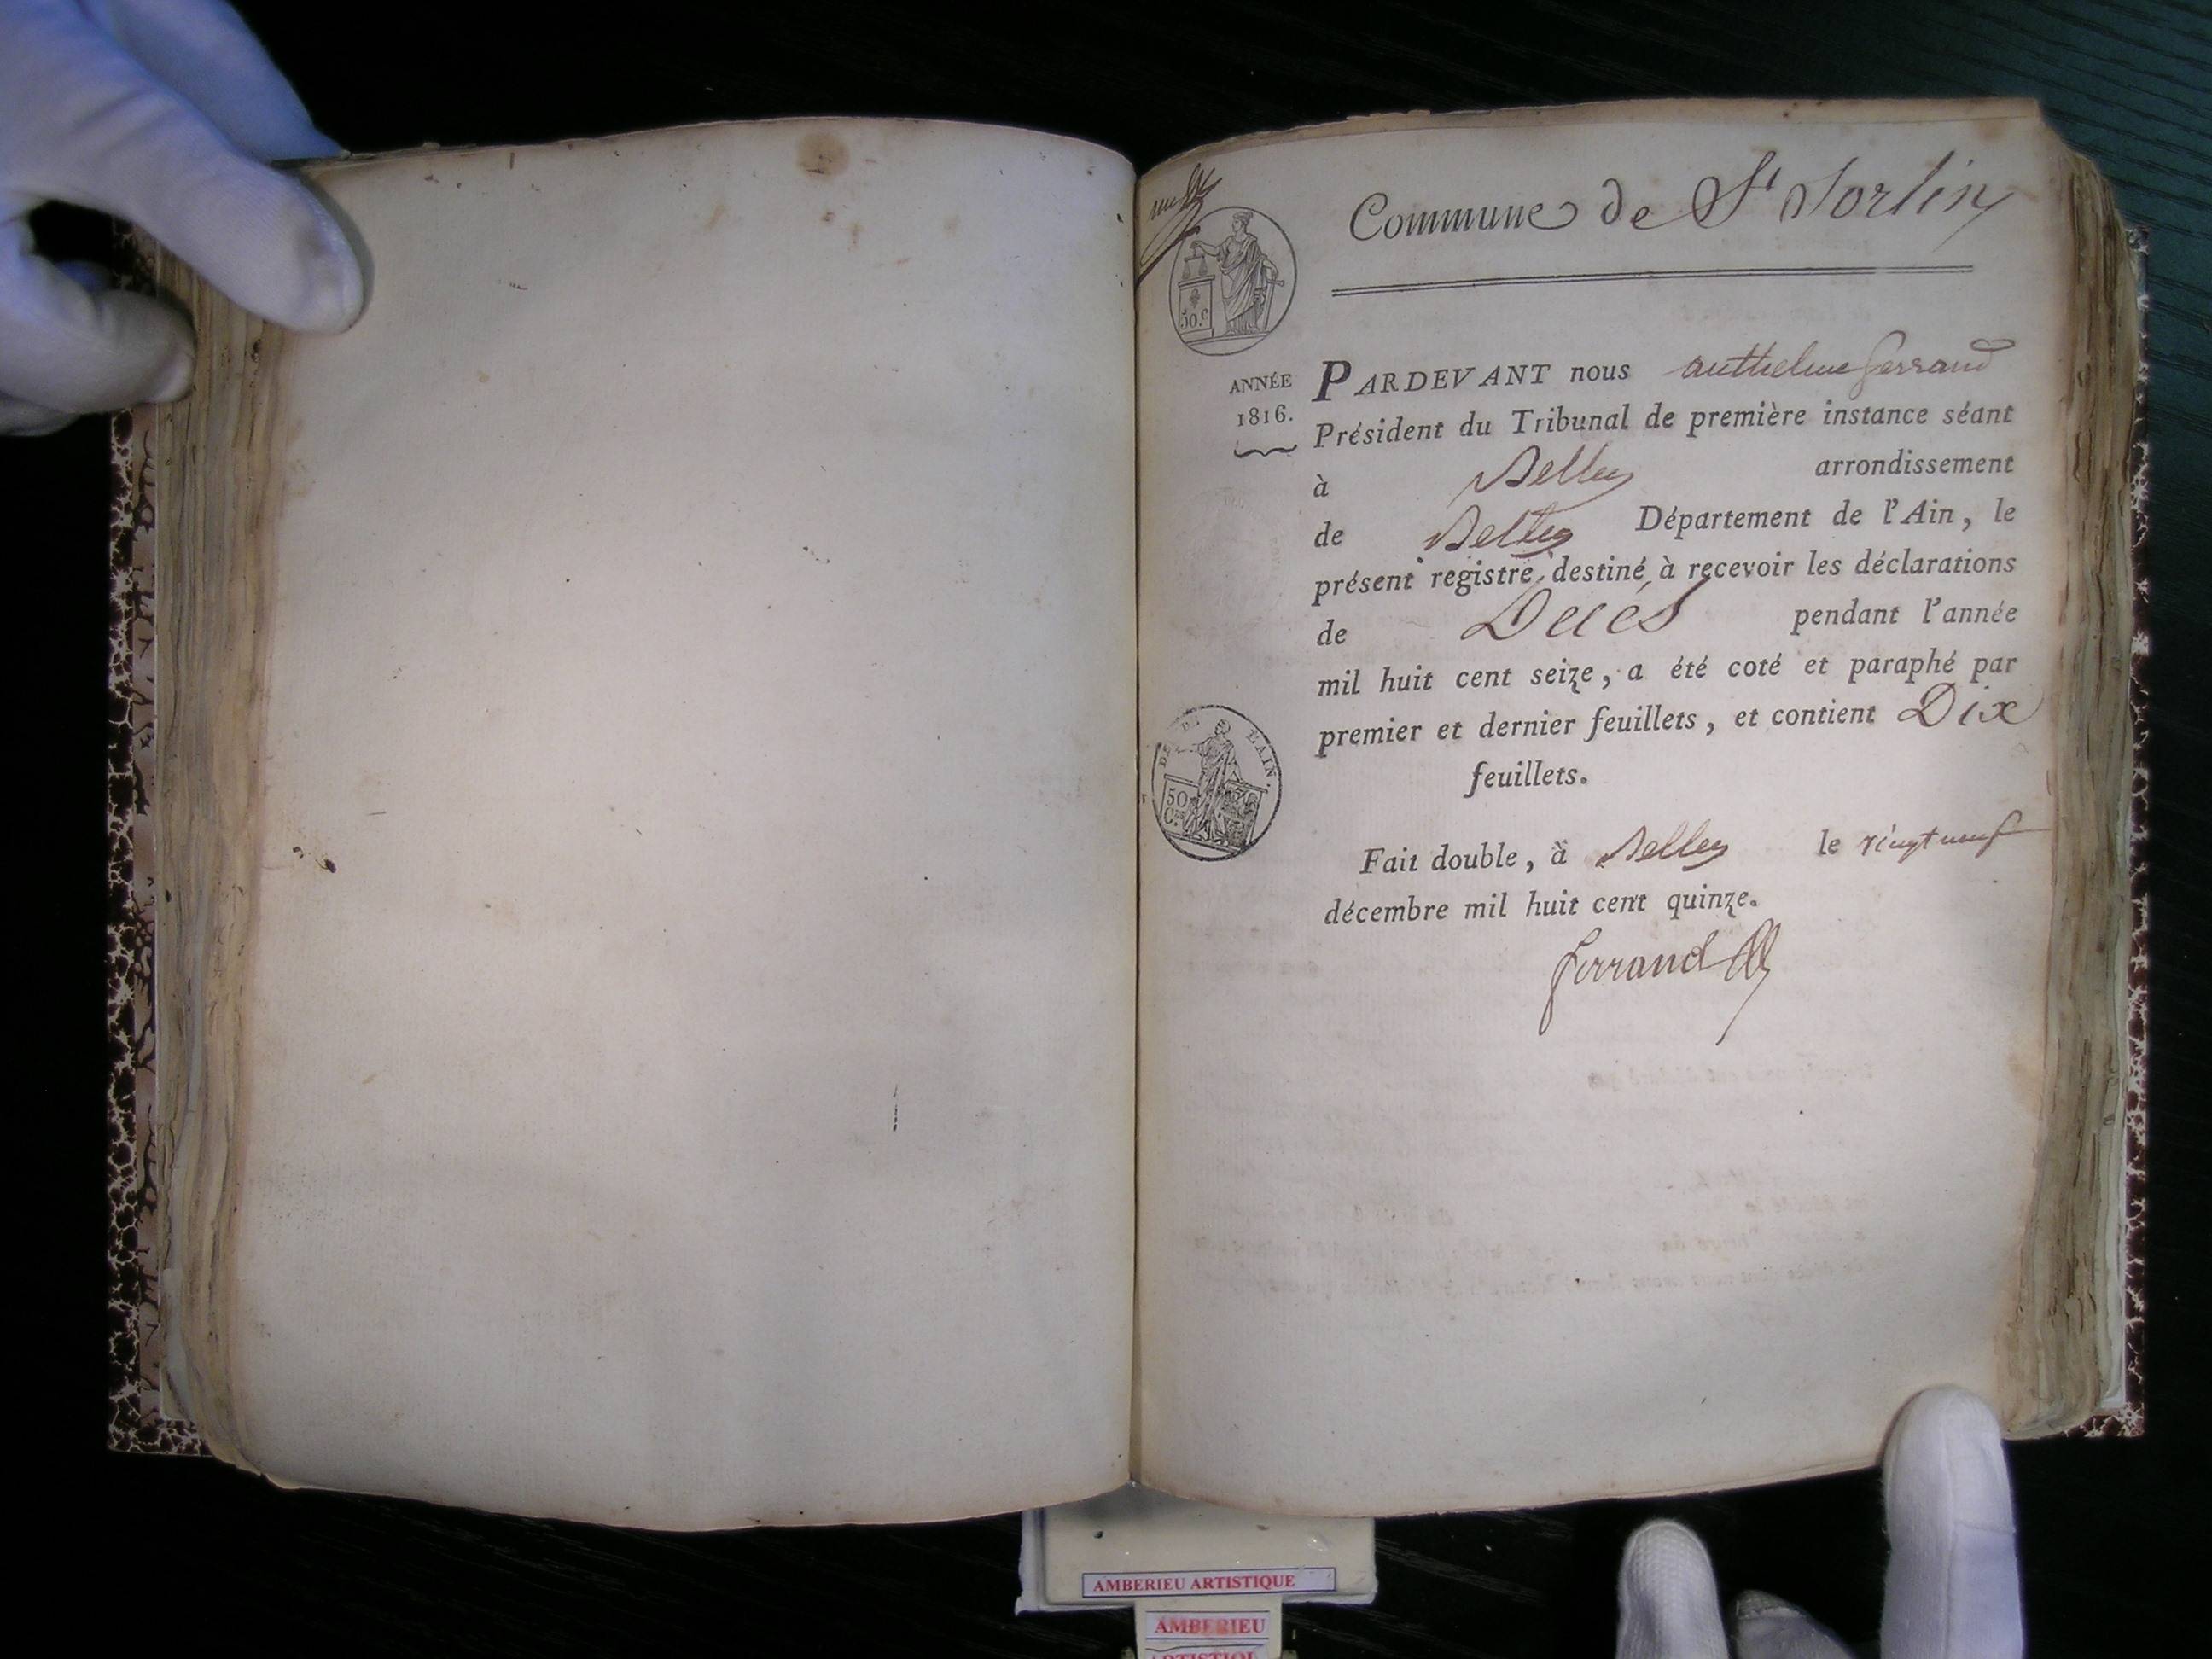 Commune de St Sorlin
50.c
ANNÉE
1816.
PARDEVANT nous anthelme ferrand
Président du Tribunal de première instance séant
à Belley arrondissement
de Belley Département de l'Ain, le
présent registre, destiné à recevoir les déclarations
de Décès pendant l'année
mil huit cent seize, a été coté et paraphé par
premier et dernier feuillets, et contient Dix
feuillets.
DE L'AIN.
50
C.es
Fait double, à Belley le vingt neuf
décembre mil huit cent quinze.
ferrand
AMBERIEU ARTISTIQUE
AMBERIEU
ARTISTIQU